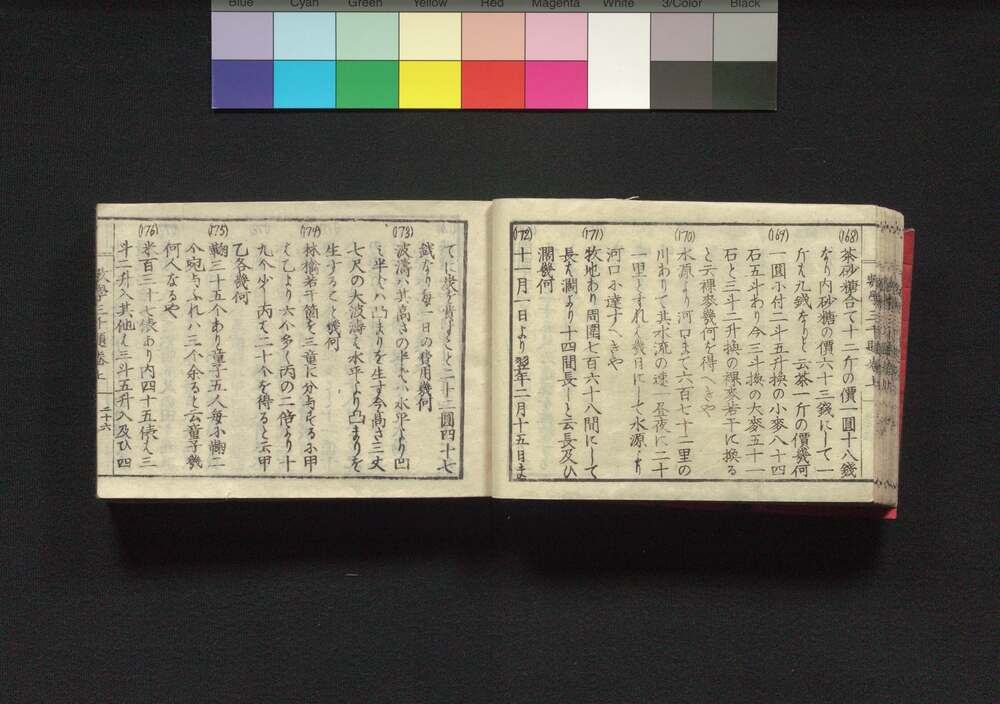 Blue Cyan Green Yellow Red Magenta White 3/Color Black
(168)
茶砂糖合て十二斤の價一圓十八錢
なり内砂糖の價六十三錢にして一
斤尤九錢なりと云茶一斤の價幾何
(169)
一圓に付二斗五升換の小麥八十四
石五斗あり今三斗換の大麥五十一
石と三斗二升換の裸麥若干に換る
と云裸麥幾何を得へきや
(170)
水源より河口まて六百七十二里の
川ありて其水流の速一昼夜に二十
一里とすれハ幾日にして水源より
河口に達すへきや
(171)
牧地あり周圍七百六十八間にして
長尤濶より十四間長しと云長及ひ
濶幾何
(172)
十一月一日より翌年二月十五日ま
てに炭を費すこと二十二圓四十七
錢なり毎一日の費用幾何
(173)
波濤ハ其高さの半ハ水平より凹
み半ハ凸まりを生す今高さ三丈
七尺の大波濤ハ水平より凸まりを
生すること幾何
(174)
林檎若干箇を三童に分与するに甲
ハ乙より六个多く丙の二倍より十
九个少し丙ハ二十个を得ると云甲
乙各幾何
(175)
鞠三十五个あり童子五人毎に鞠二
个宛与ふれハ三个余ると云童子幾
何人なるや
(176)
米百三十七俵あり内四十五俵ハ三
斗二升入其他ハ三斗五升入及ひ四
數學三千題卷上
二十六